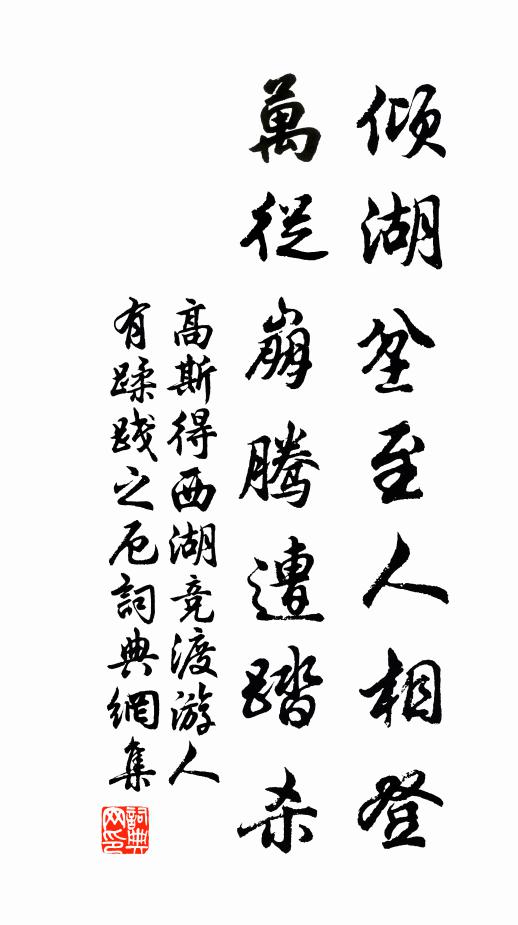 傾湖坌至人相登
萬從崩騰遭踏杀
高斯得西湖竞渡游人
有蹂践之厄詞典網集
詞典网印